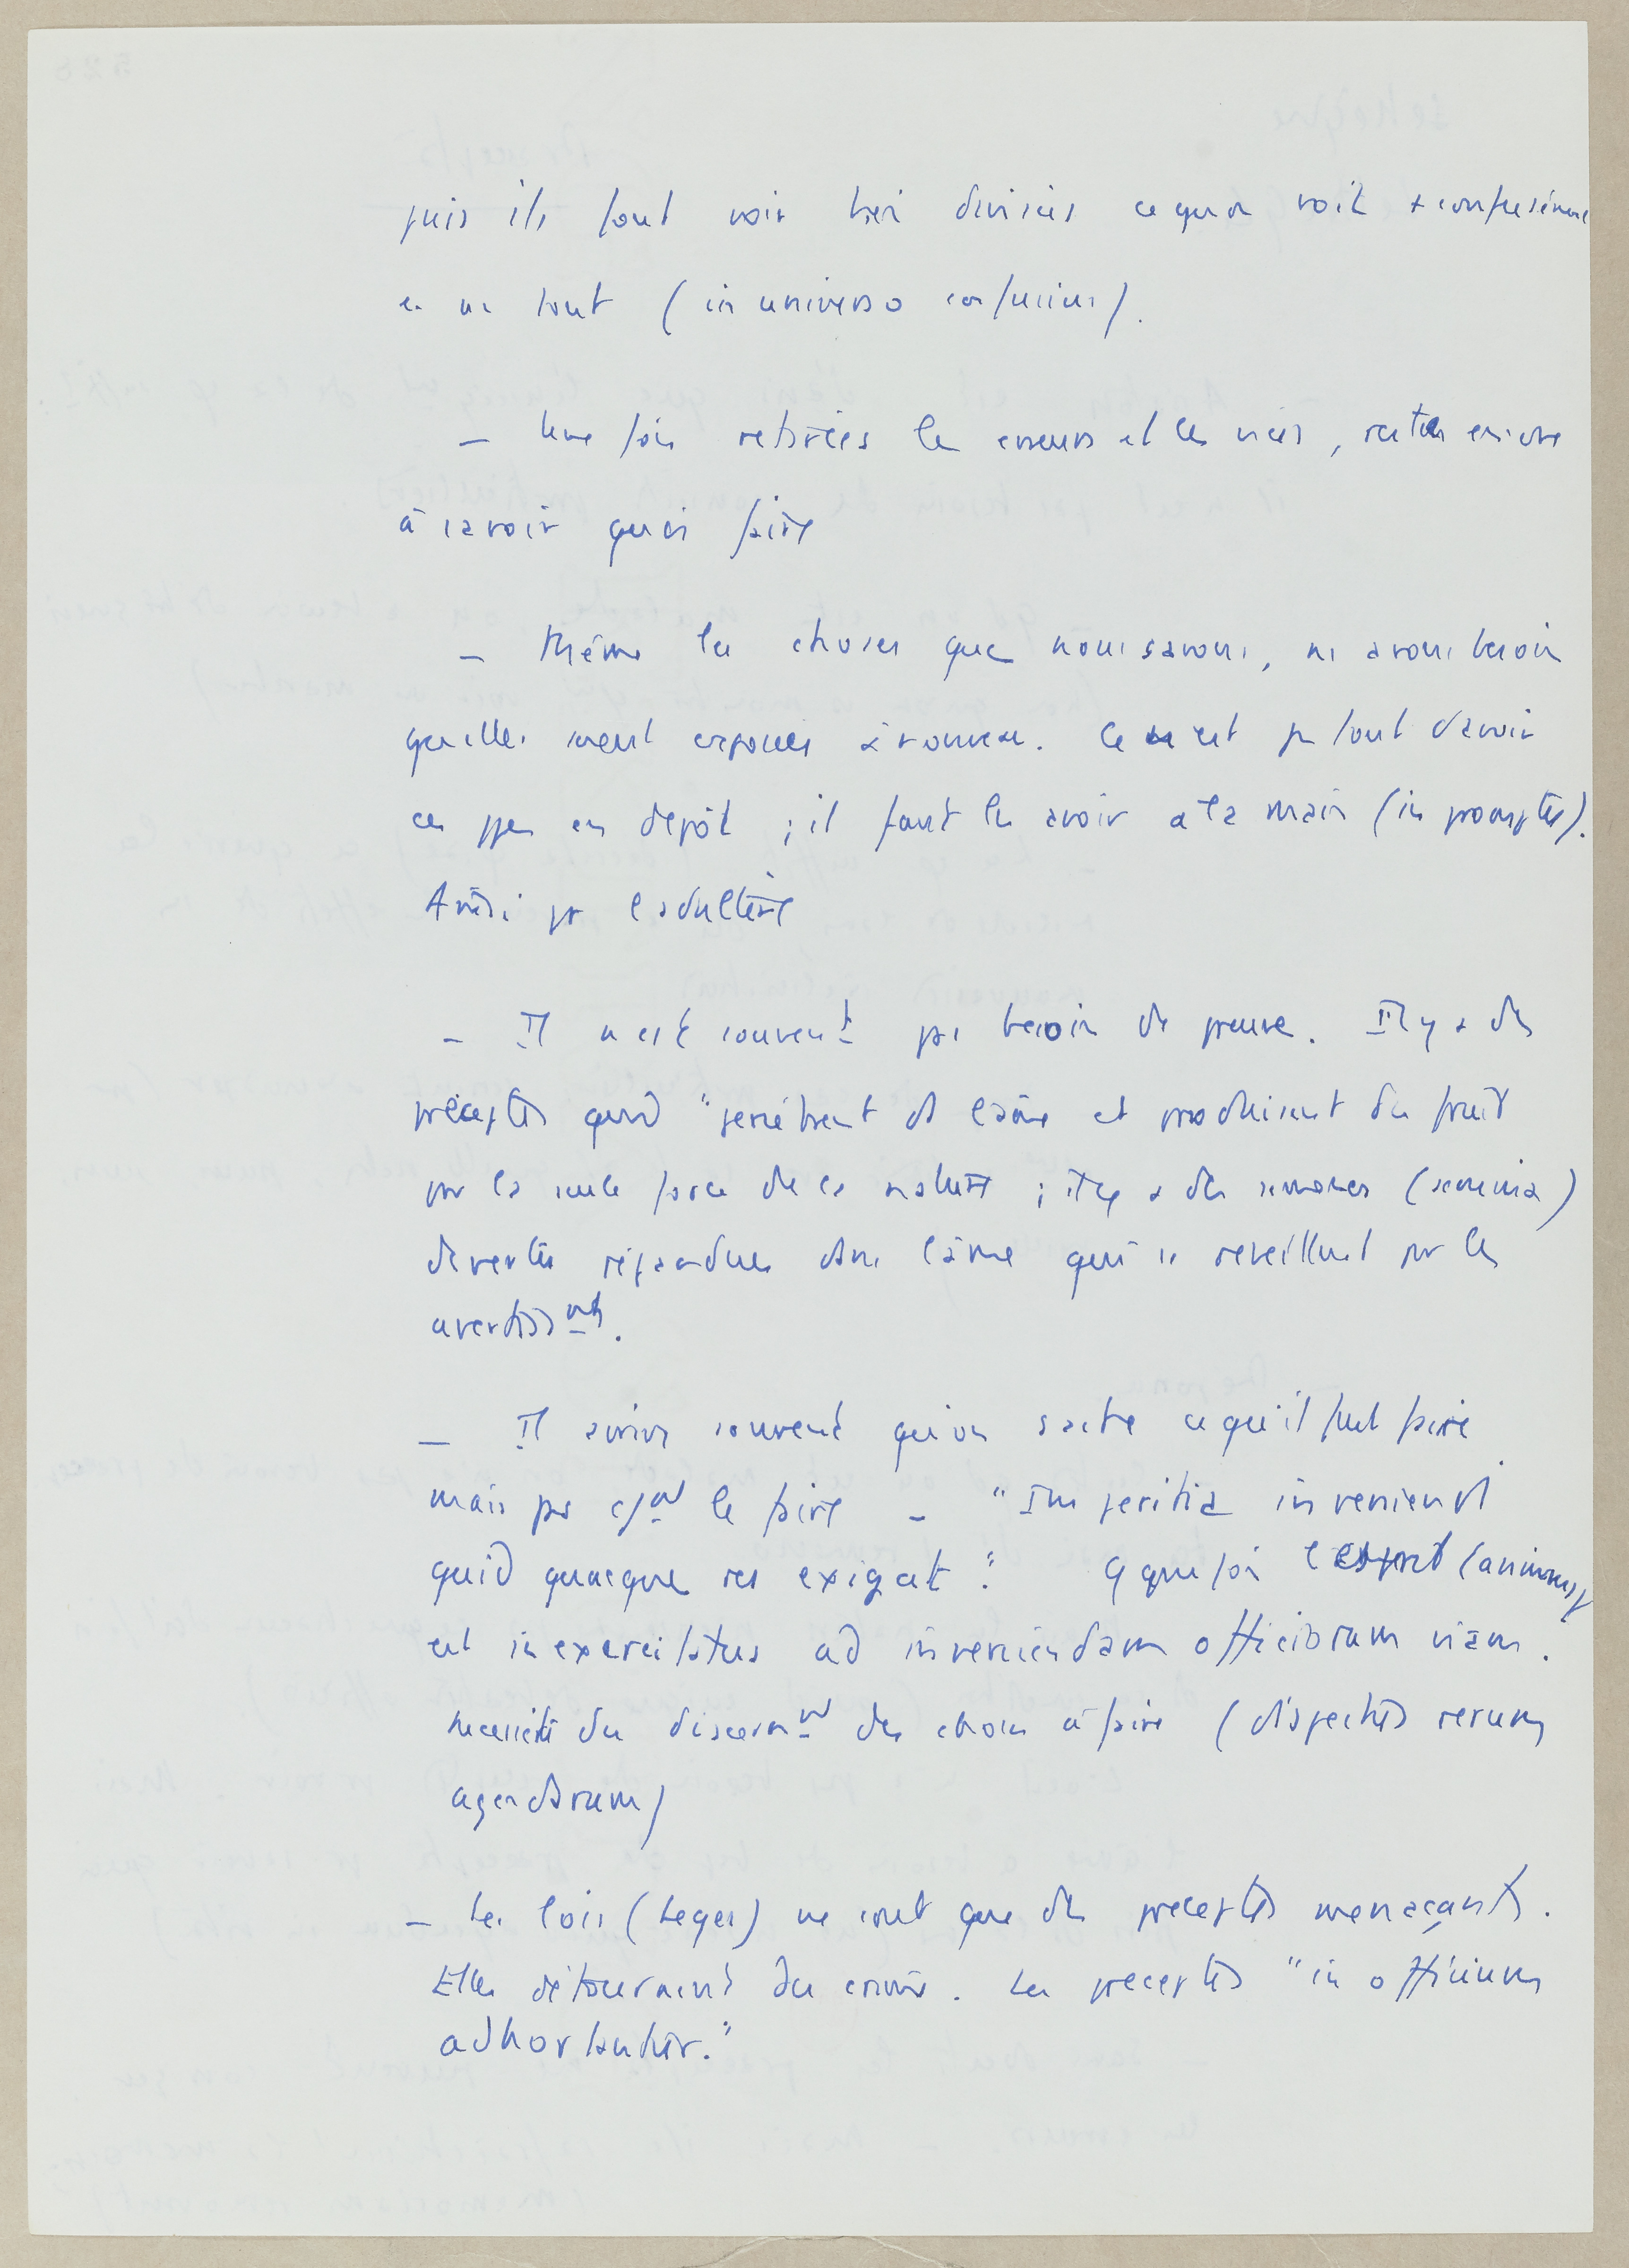 puis ils font voir bien divisées ce qu'on voit + confusément
en un tout (in universo confusius).
— Une fois retirées les erreurs et les vices, reste encore
à savoir quoi faire
— Même les choses que nous savons, ns avons besoin
qu'elles soient exposées à nouveau. Ce n'est pas tout d'avoir
ces ppes en dépôt ; il faut les avoir à la main (in promptu).
Ainsi pr l'adultère
— Il n'est souvent pas besoin de preuve. Il y a des
préceptes qui "pénètrent ds l'âme et produisent du fruit
par la seule force de la nature ; il y a des semences (semina)
de vertu répandues dans l'âme qui se réveillent par les
avertissmts.
— Il arrive souvent qu'on sache ce qu'il faut faire
mais pas cmt le faire — "Imperitia inveniendi
quid quaeque res exigat". Qquefois l'esprit (animus)
est inexercitatus ad inveniendam officiorum viam.
Nécessité du discernmt des choses à faire (dispectus rerum
agendarum)
— Les lois (Leges) ne sont que des préceptes menaçants.
Elles détournent du crime. Les préceptes "in officium
adhortantur."